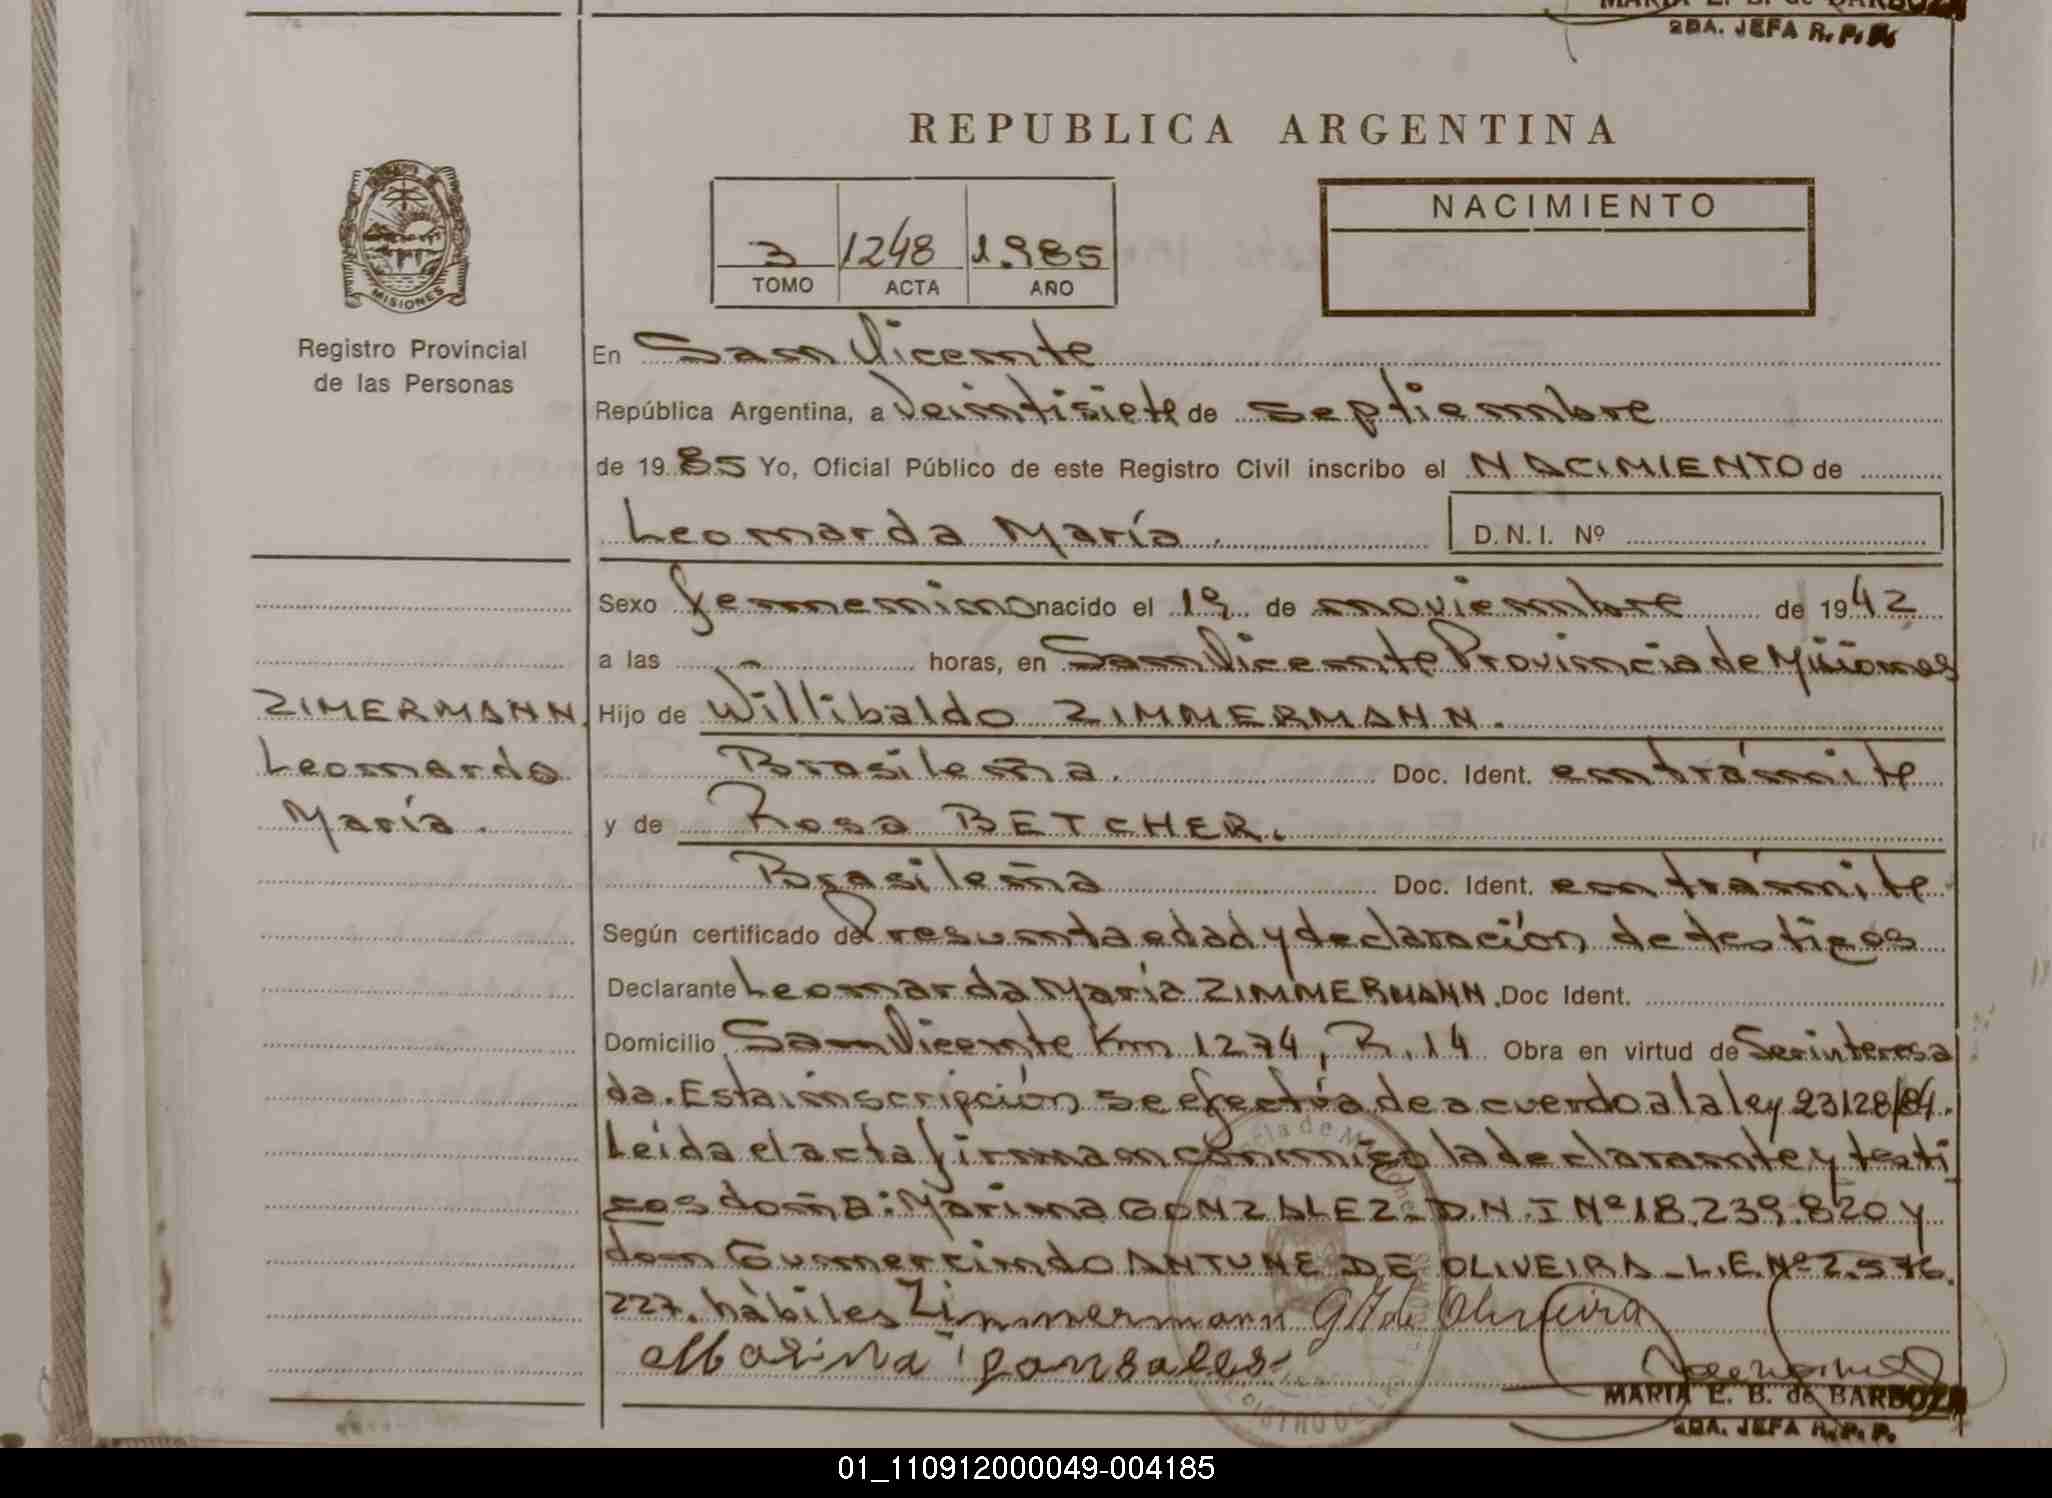 MARIA E. B. de BARBOZA
2DA. JEFA R. P. P.
REPUBLICA ARGENTINA
MISIONES
Registro Provincial
de las Personas
3 1248 1.985
TOMO ACTA AÑO
NACIMIENTO
En San Vicente
República Argentina, a Veintisiete de septiembre
de 1985 Yo, Oficial Público de este Registro Civil inscribo el NACIMIENTO de
Leonarda María.
D.N.I. Nº
Sexo femenino nacido el 19 de noviembre de 1942
a las - horas, en San Vicente Provincia de Misiones
ZIMERMANN
Leonarda
María.
Hijo de Willibaldo ZIMMERMANN.
Brasileña. Doc. Ident. en trámite
y de Rosa BETCHER.
Brasileña Doc. Ident. en trámite
Según certificado de Presunta edad y declaración de testigos
Declarante Leonarda María ZIMMERMANN. Doc Ident.
Domicilio San Vicente Km 1274, R. 14 Obra en virtud de Ser interesa
da. Esta inscripción se efectúa de acuerdo a la ley 23128/84.
Leída el acta firman conmigo la declarante y testi
gos doña: Marina GONZALEZ- D.N.I Nº 18.239.820 y
don Gumercindo ANTUNE DE OLIVEIRA - L.E. Nº 2.576.
227. hábiles Zimmermann G A de Oliveira
Marina gonsales
MARIA E. B. de BARBOZA
2DA. JEFA R. P. P.
01_110912000049-004185